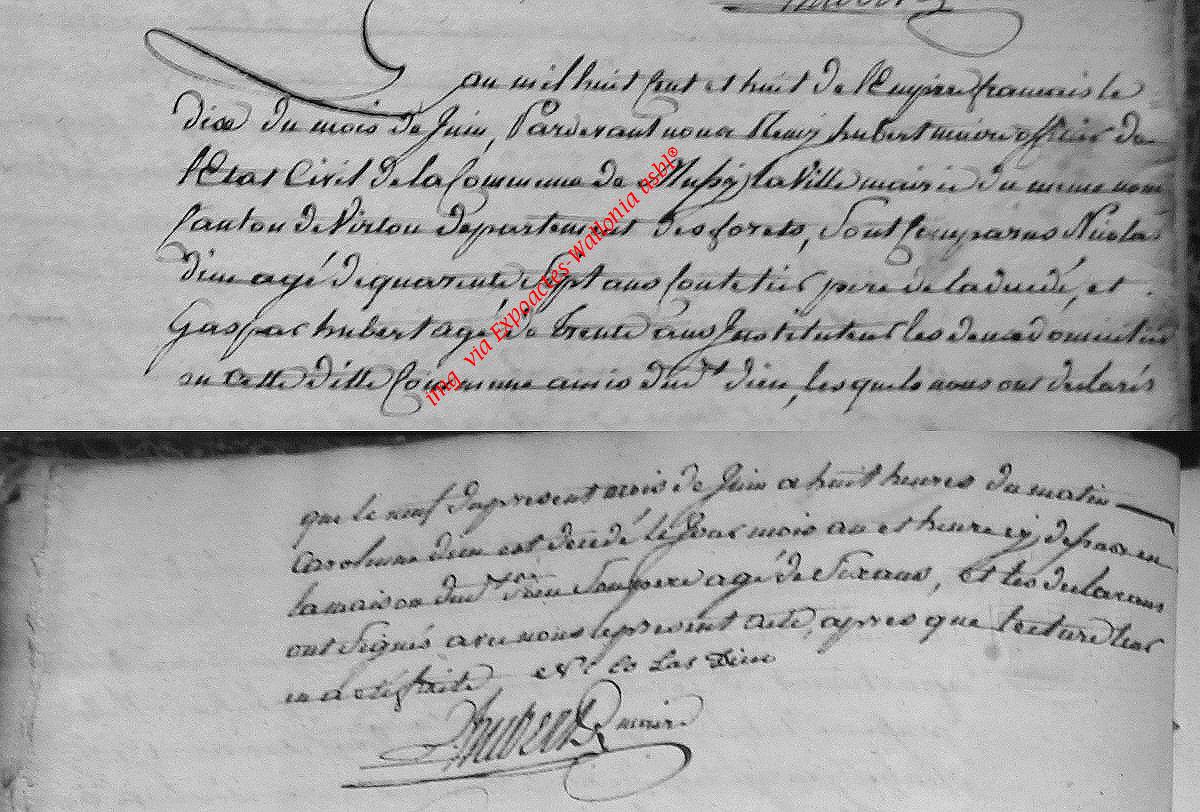 an mil huit Cent et huit de l'Empire francais le
dix du mois de Juin, Pardevant nous Remij hubert maire officier de
l'Etat Civil de la Commune de Mussy la Ville mairie du meme nom
Canton de Virton departement des forets, Sont Comparus Nicolas
dieu agé de quarente Sept ans Coutelier pere de la decedé, et
Gaspar hubert agé de trente ans Instituteur les deux domiciliés
en cette ditte Commune amis dudt dieu, lesquels nous ont declarés
que le neuf du present mois de Juin a huit heures du matin
Carolinne dieu est decedé le Jour mois an et heure cy dessus en
la maison dudt dieu Son pere agé de Six ans, et les declarans
ont Signés avec nous le present acte, apres que lecture leur
en a eté faite Nicolas Dieu
Hubert maire
img via Expoactes-Wallonia asbl®